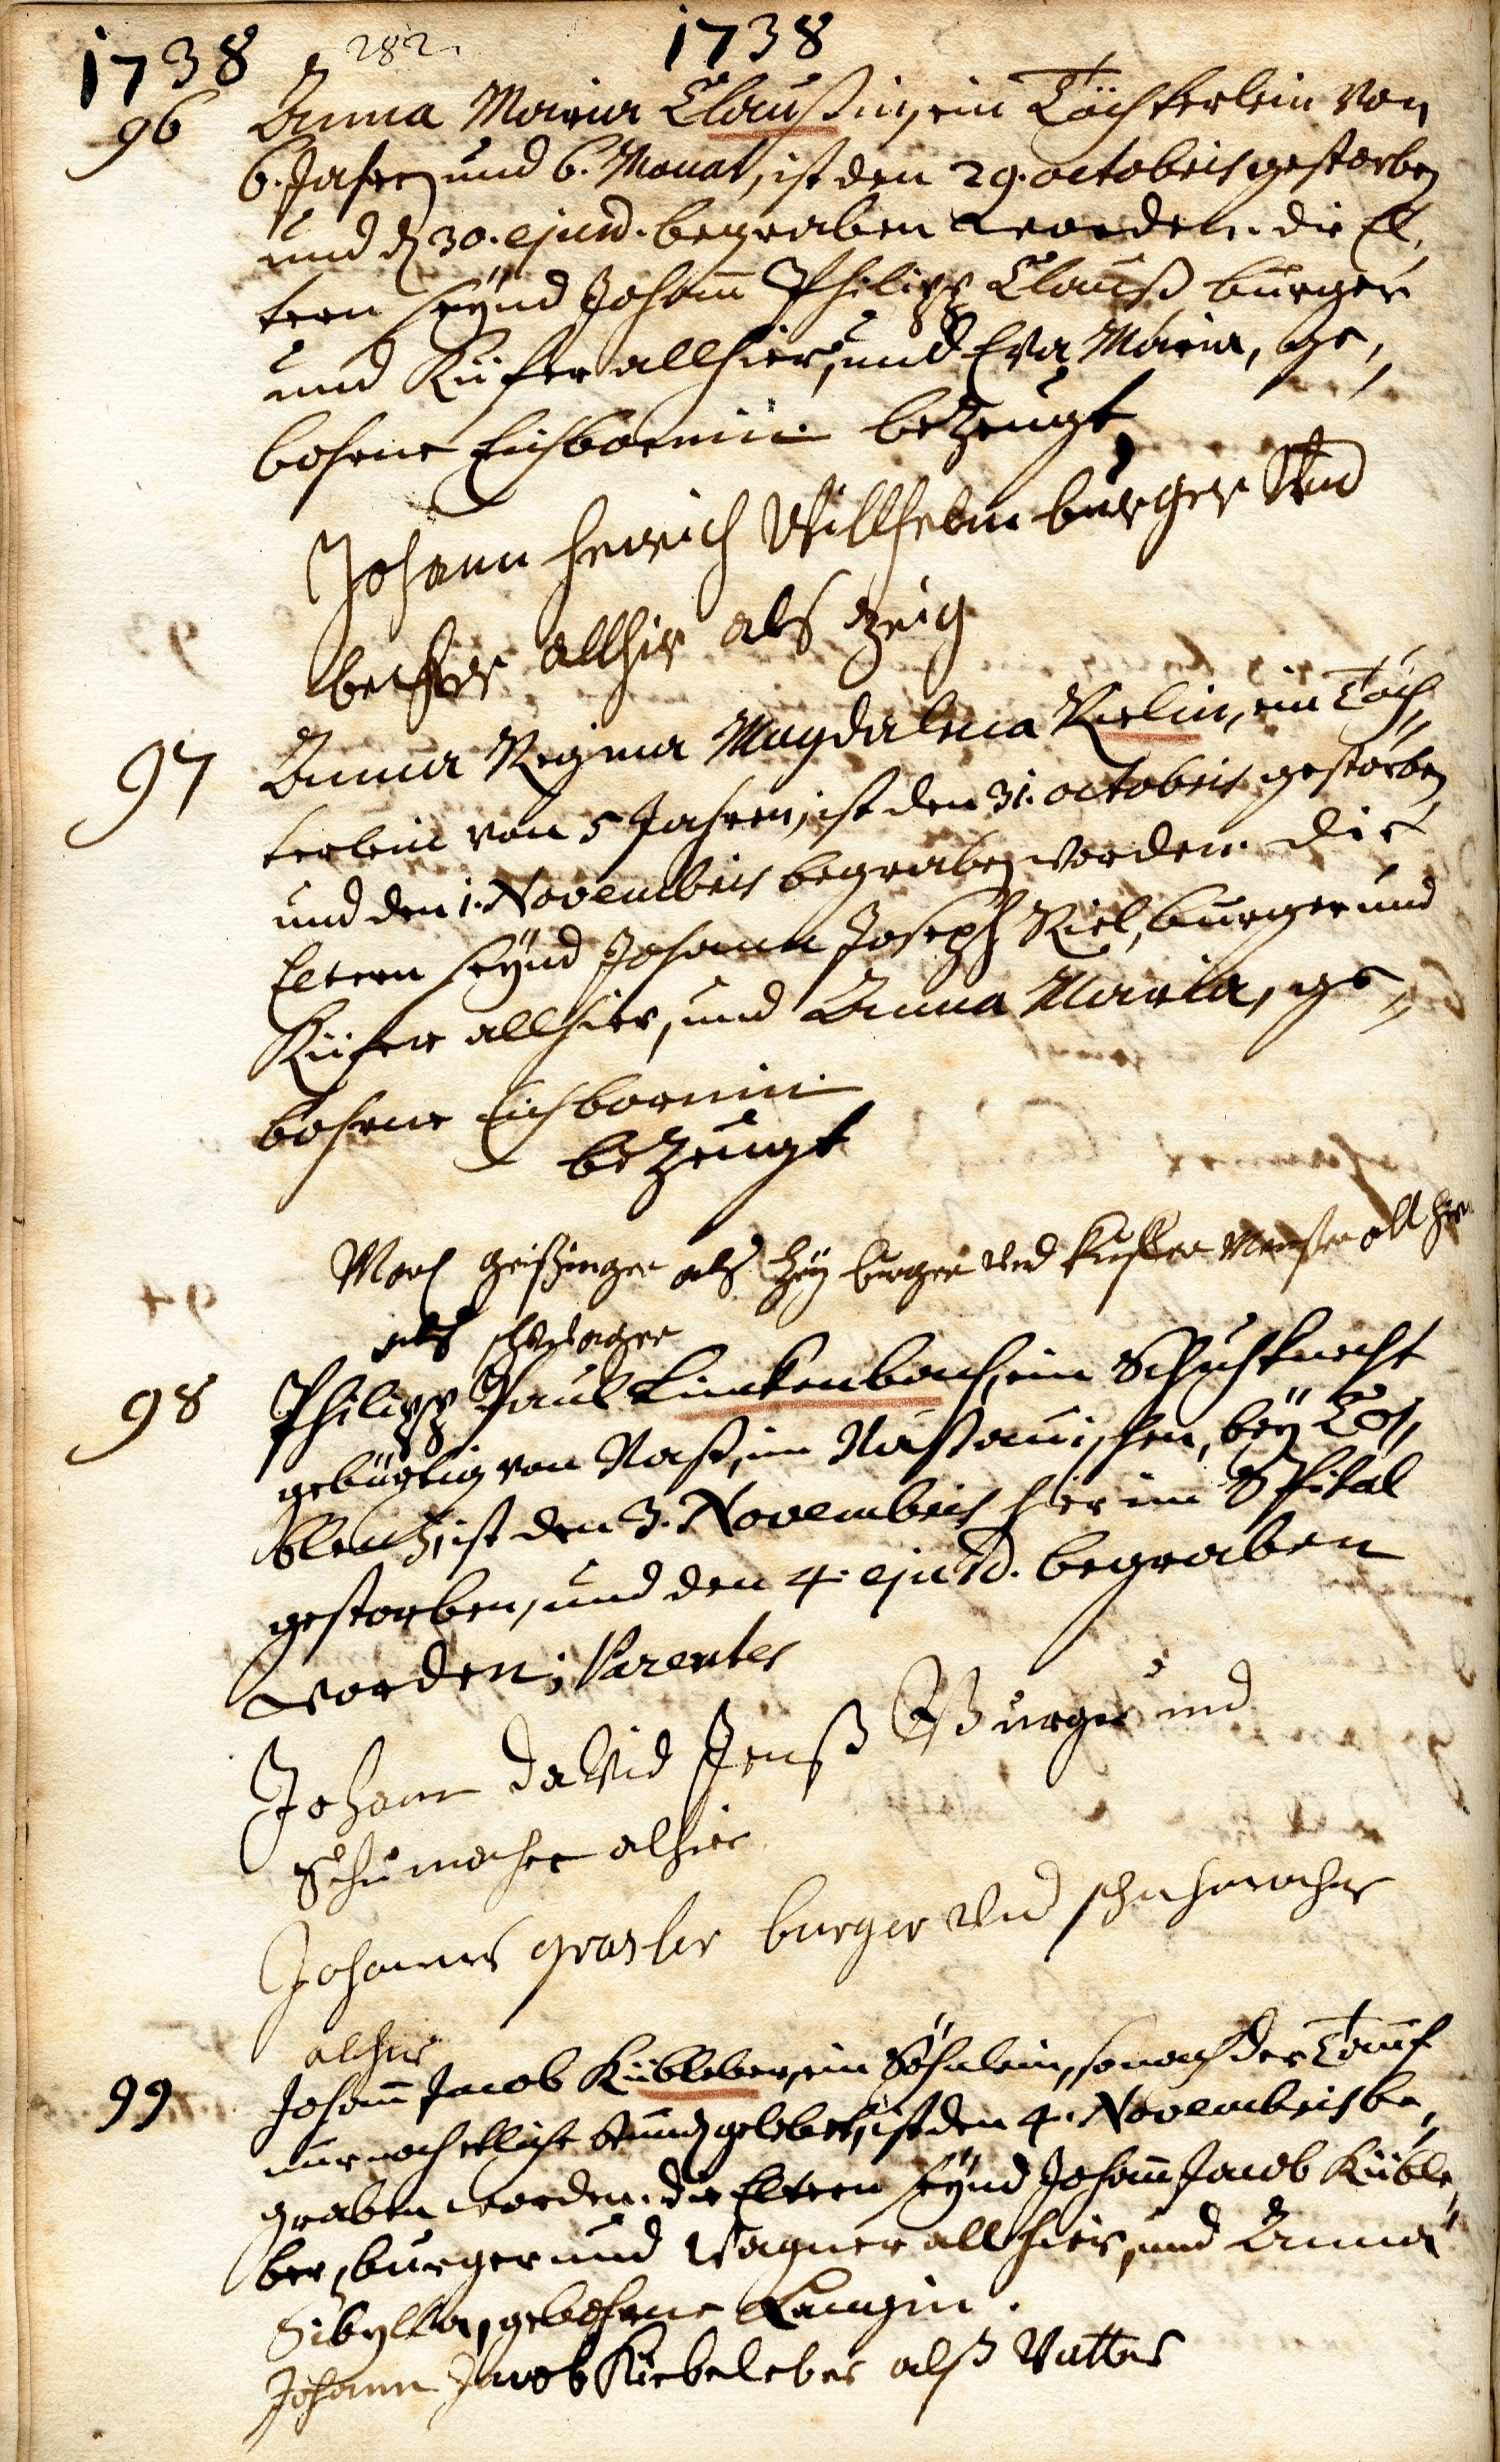 1738 282. 1738
96 Anna Maria Claußin, ein Töchterlein von
6. Jahr und 6. Monat, ist den 29. octobris gestorben
und den 30. ejusd. begraben worden. die El,
tern seÿnd Johann Philipp Clauß burger
und Küfer allhier, und Eva Maria, ge,
bohrne Eichbornin. bezeugt
Johann Henrich Willhelm burger Vnd
becker allhir als zeig
97 Anna Regina Magdalena Rielin, ein Töch,
terlein von 5 Jahren, ist den 31. octobris gestorben
und den 1. Novembris begraben worden. die
Eltern seÿnd Johann Joseph Riel, burger und
Küfer allhier, und Anna Maria, ge,
bohrne Eichbornin.
bezeugt
geißinger als burger vnd allhir
als schwager
98 Philipp Paul Linckenbach, ein Schuhknecht
gebürtig von Naß, im Naßauischen, beÿ Co,
blentz, ist den 3. Novembris hier im Spital
gestorben, und den 4. ejusd. begraben
worden; Parentes
Johann david Jenß Burger und
Schumacher alhier
Johannes burger Vnd schuhmacher
alhir
99 Johann Jacob Kübleber, ein Söhnlein, so nach der Tauf
nur noch etliche Stund gelebet, ist den 4. Novembris be,
graben worden. die Eltern seÿnd Johann Jacob Küble,
ber, burger und Wagner allhier, und Anna
Sibylla, gebohrne Langin.
Johann Jacob Kiebeleber alß Vatter